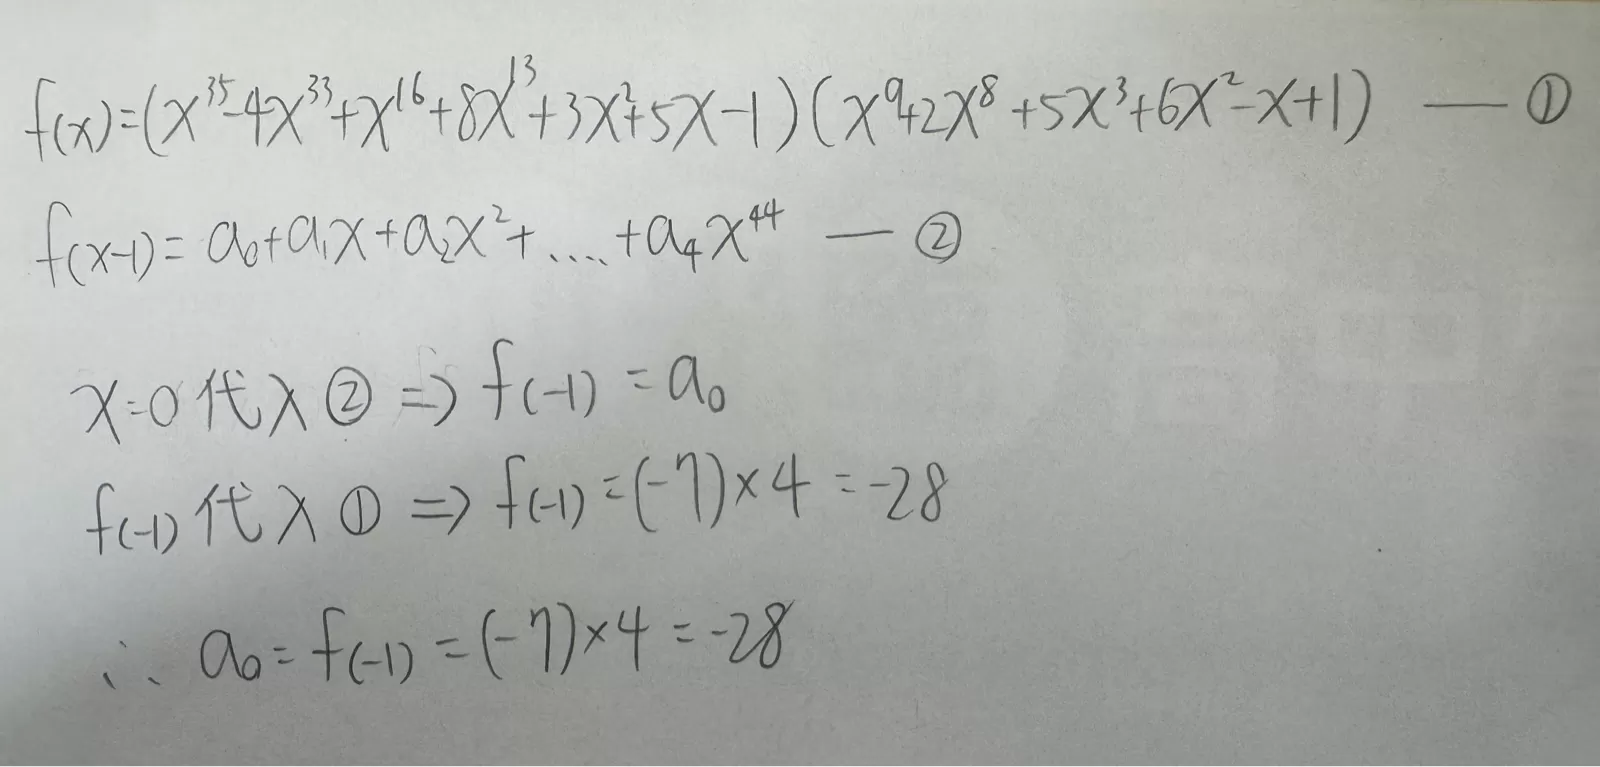 f(x)=(x³⁵-4x³³+x¹⁶+8x¹³+3x²+5x-1)(x⁹+2x⁸+5x³+6x²-x+1) — ①
f(x-1)=a₀+a₁x+a₂x²+....+a₄x⁴⁴ — ②
x=0代入②⇒f(-1)=a₀
f(-1)代入①⇒f(-1)=(-7)×4=-28
∴a₀=f(-1)=(-7)×4=-28